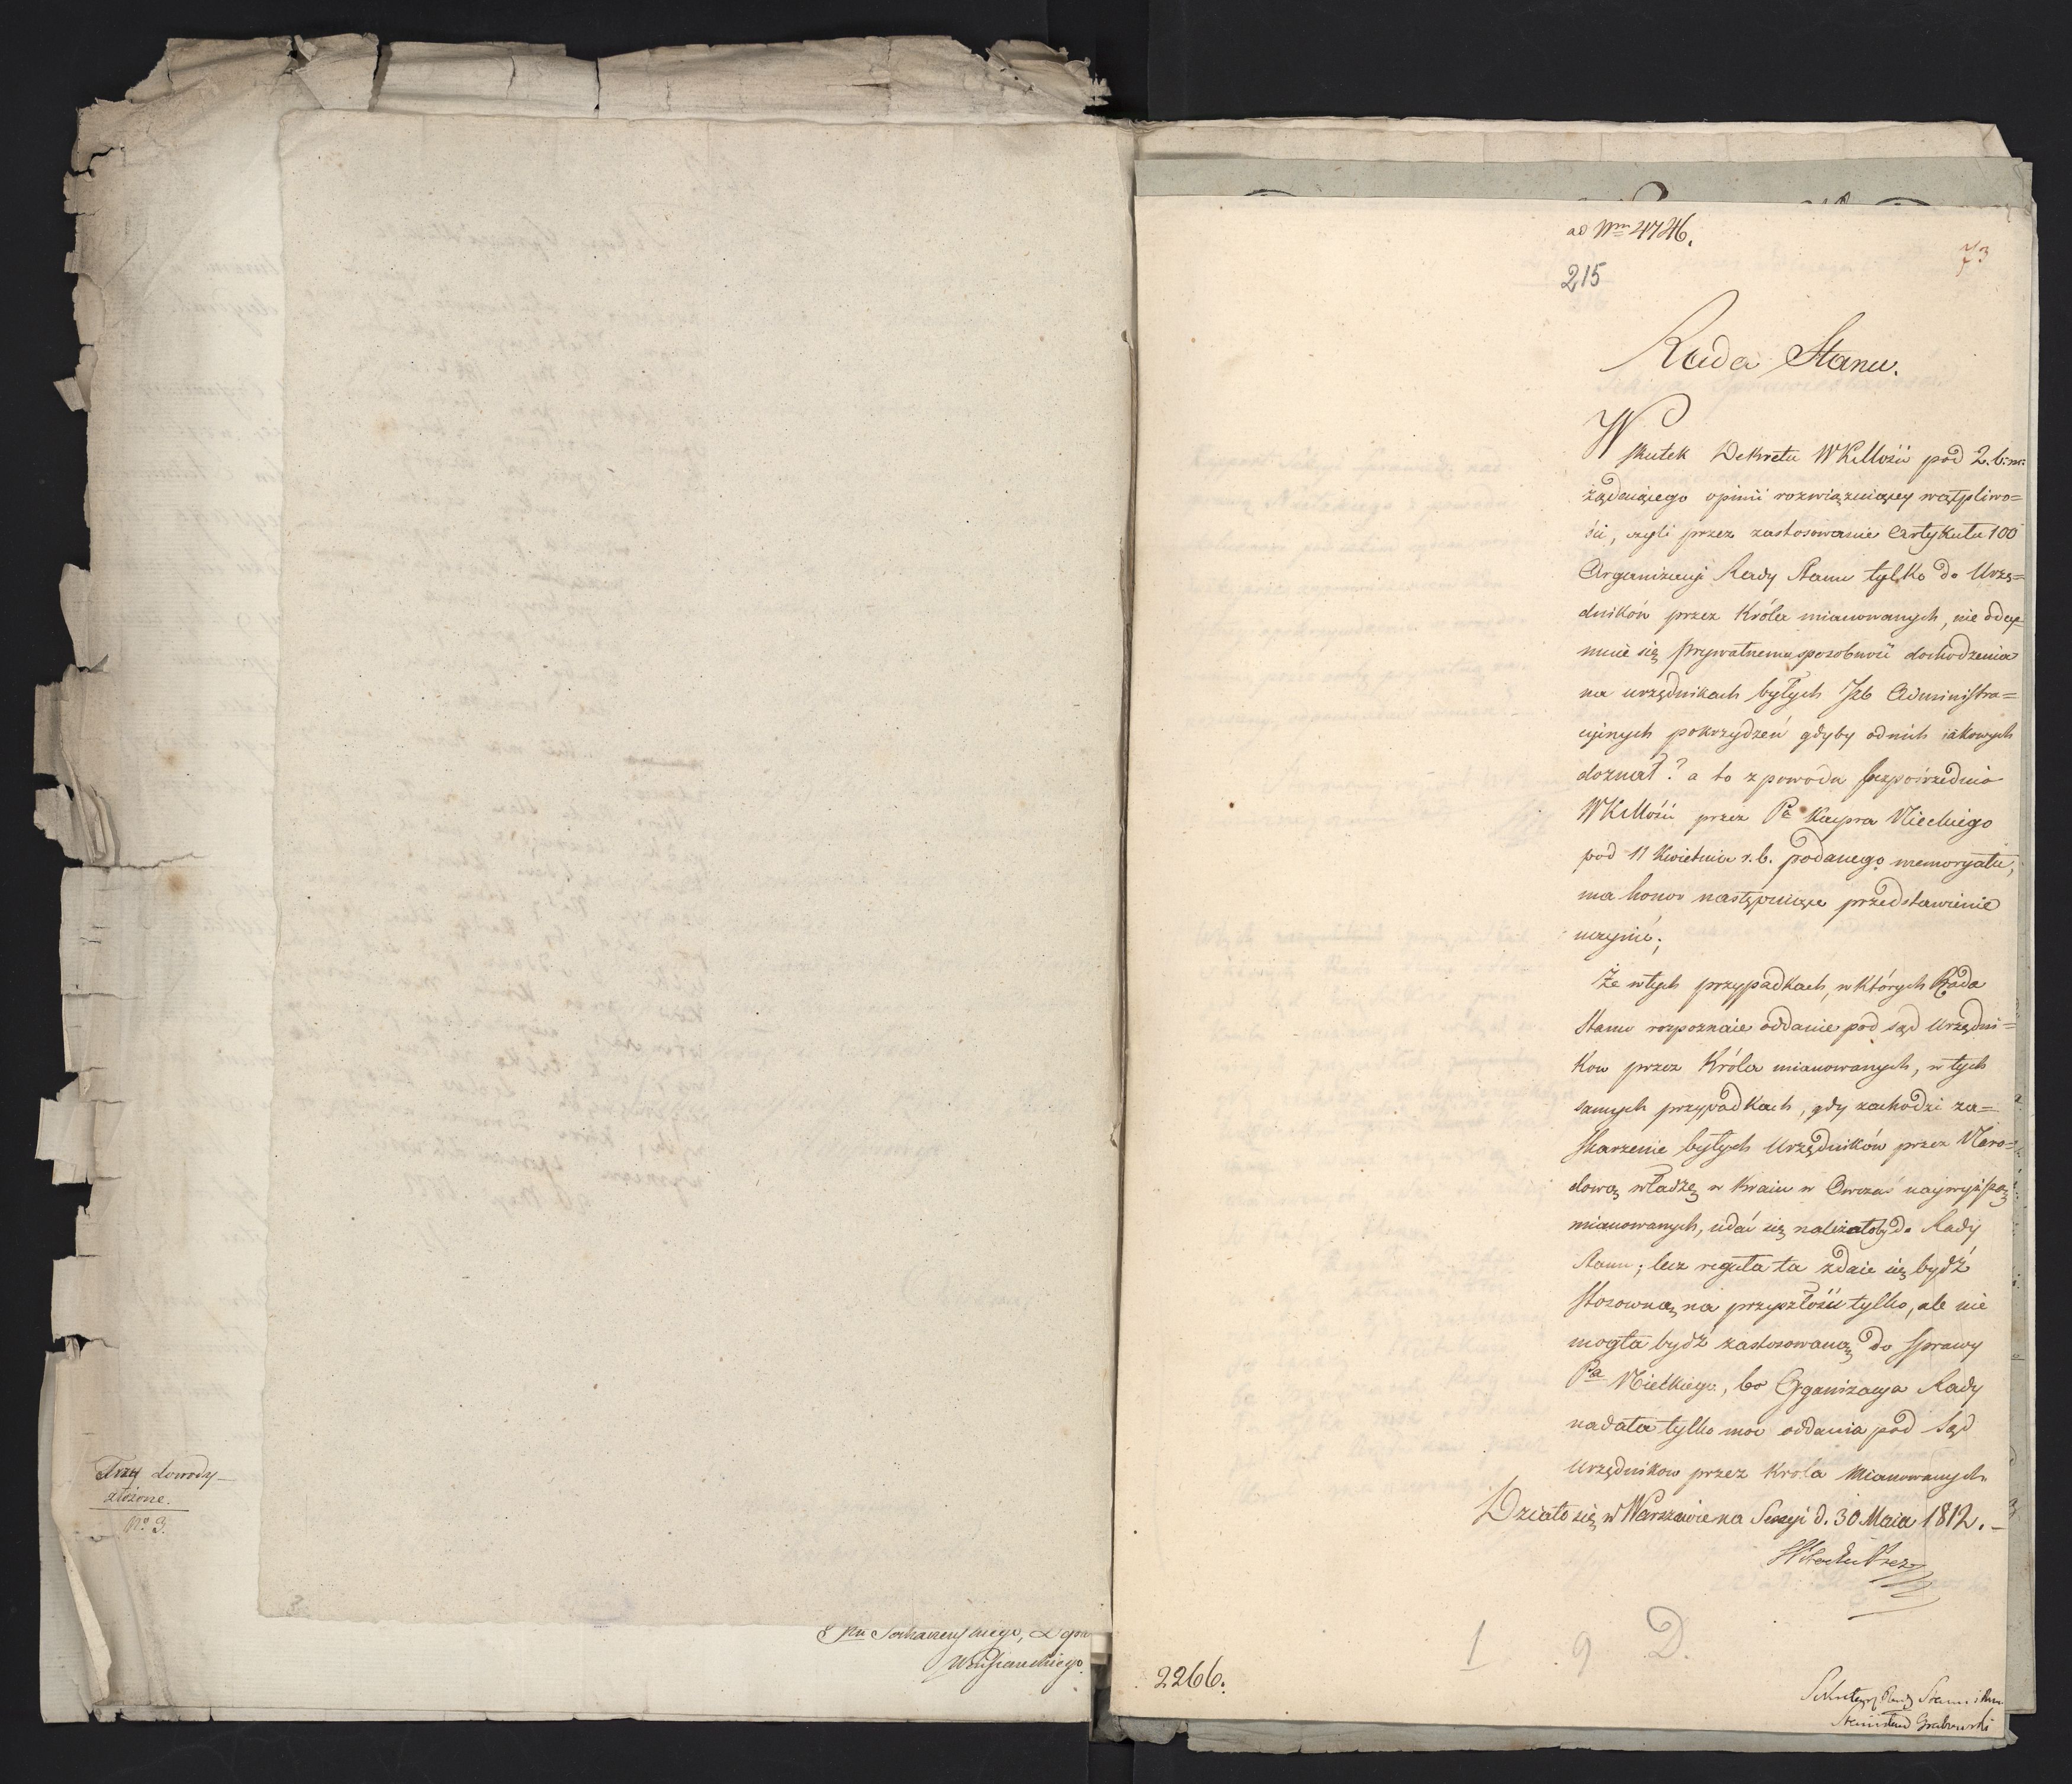 Trzy dowody
złożone.
No 3.
Sochaczewskiego, Dgo
ad Nrm 4746.
73
215
Rada Stanu.
W skutek Dekretu WKMości pod 2. b: m:
żądaiącego opinii rozwiązuiącey wątpliwo=
ści, czyli przez zastosowanie Artykułu 100
Organizacyi Rady Stanu tylko do Urzę=
dników przez Króla mianowanych, nie odey=
muie się prywatnemu sposobność dochodzenia
na urzędnikach byłych Izb Administra=
cyinych pokrzydzeń gdyby od nich iakowych
doznał? a to z powodu bezpośrzednio
WKMości przez Pa Kacpra Nieckiego
pod 11 Kwietnia r. b. podanego memoryału,
ma honor następuiące przedstawienie
uczynić;
Że w tych przypadkach, w których Rada
Stanu rozpoznaie oddanie pod sąd Urzędni=
kow przez Króla mianowanych, w tych
samych przypadkach, gdy zachodzi za=
skarzenie byłych Urzędników przez Naro=
dową władzę w Kraiu w Owczas naywyższą
mianowanych, udać się należałoby do Rady
Stanu; lecz reguła ta zdaie się bydź
stosowną na przyszłość tylko, ale nie
mogła bydź zastosowaną do sprawy
Pa Nieckiego, bo Organizacya Rady
nadała tylko moc oddania pod Sąd
Urzędnikow przez Krola Mianowanych.
Działo się w Warszawie na Sessyi d. 30 Maia 1812. –
1 9 D.
2266.
Sekretarz Rady Stanu
Stanisław Grabowski